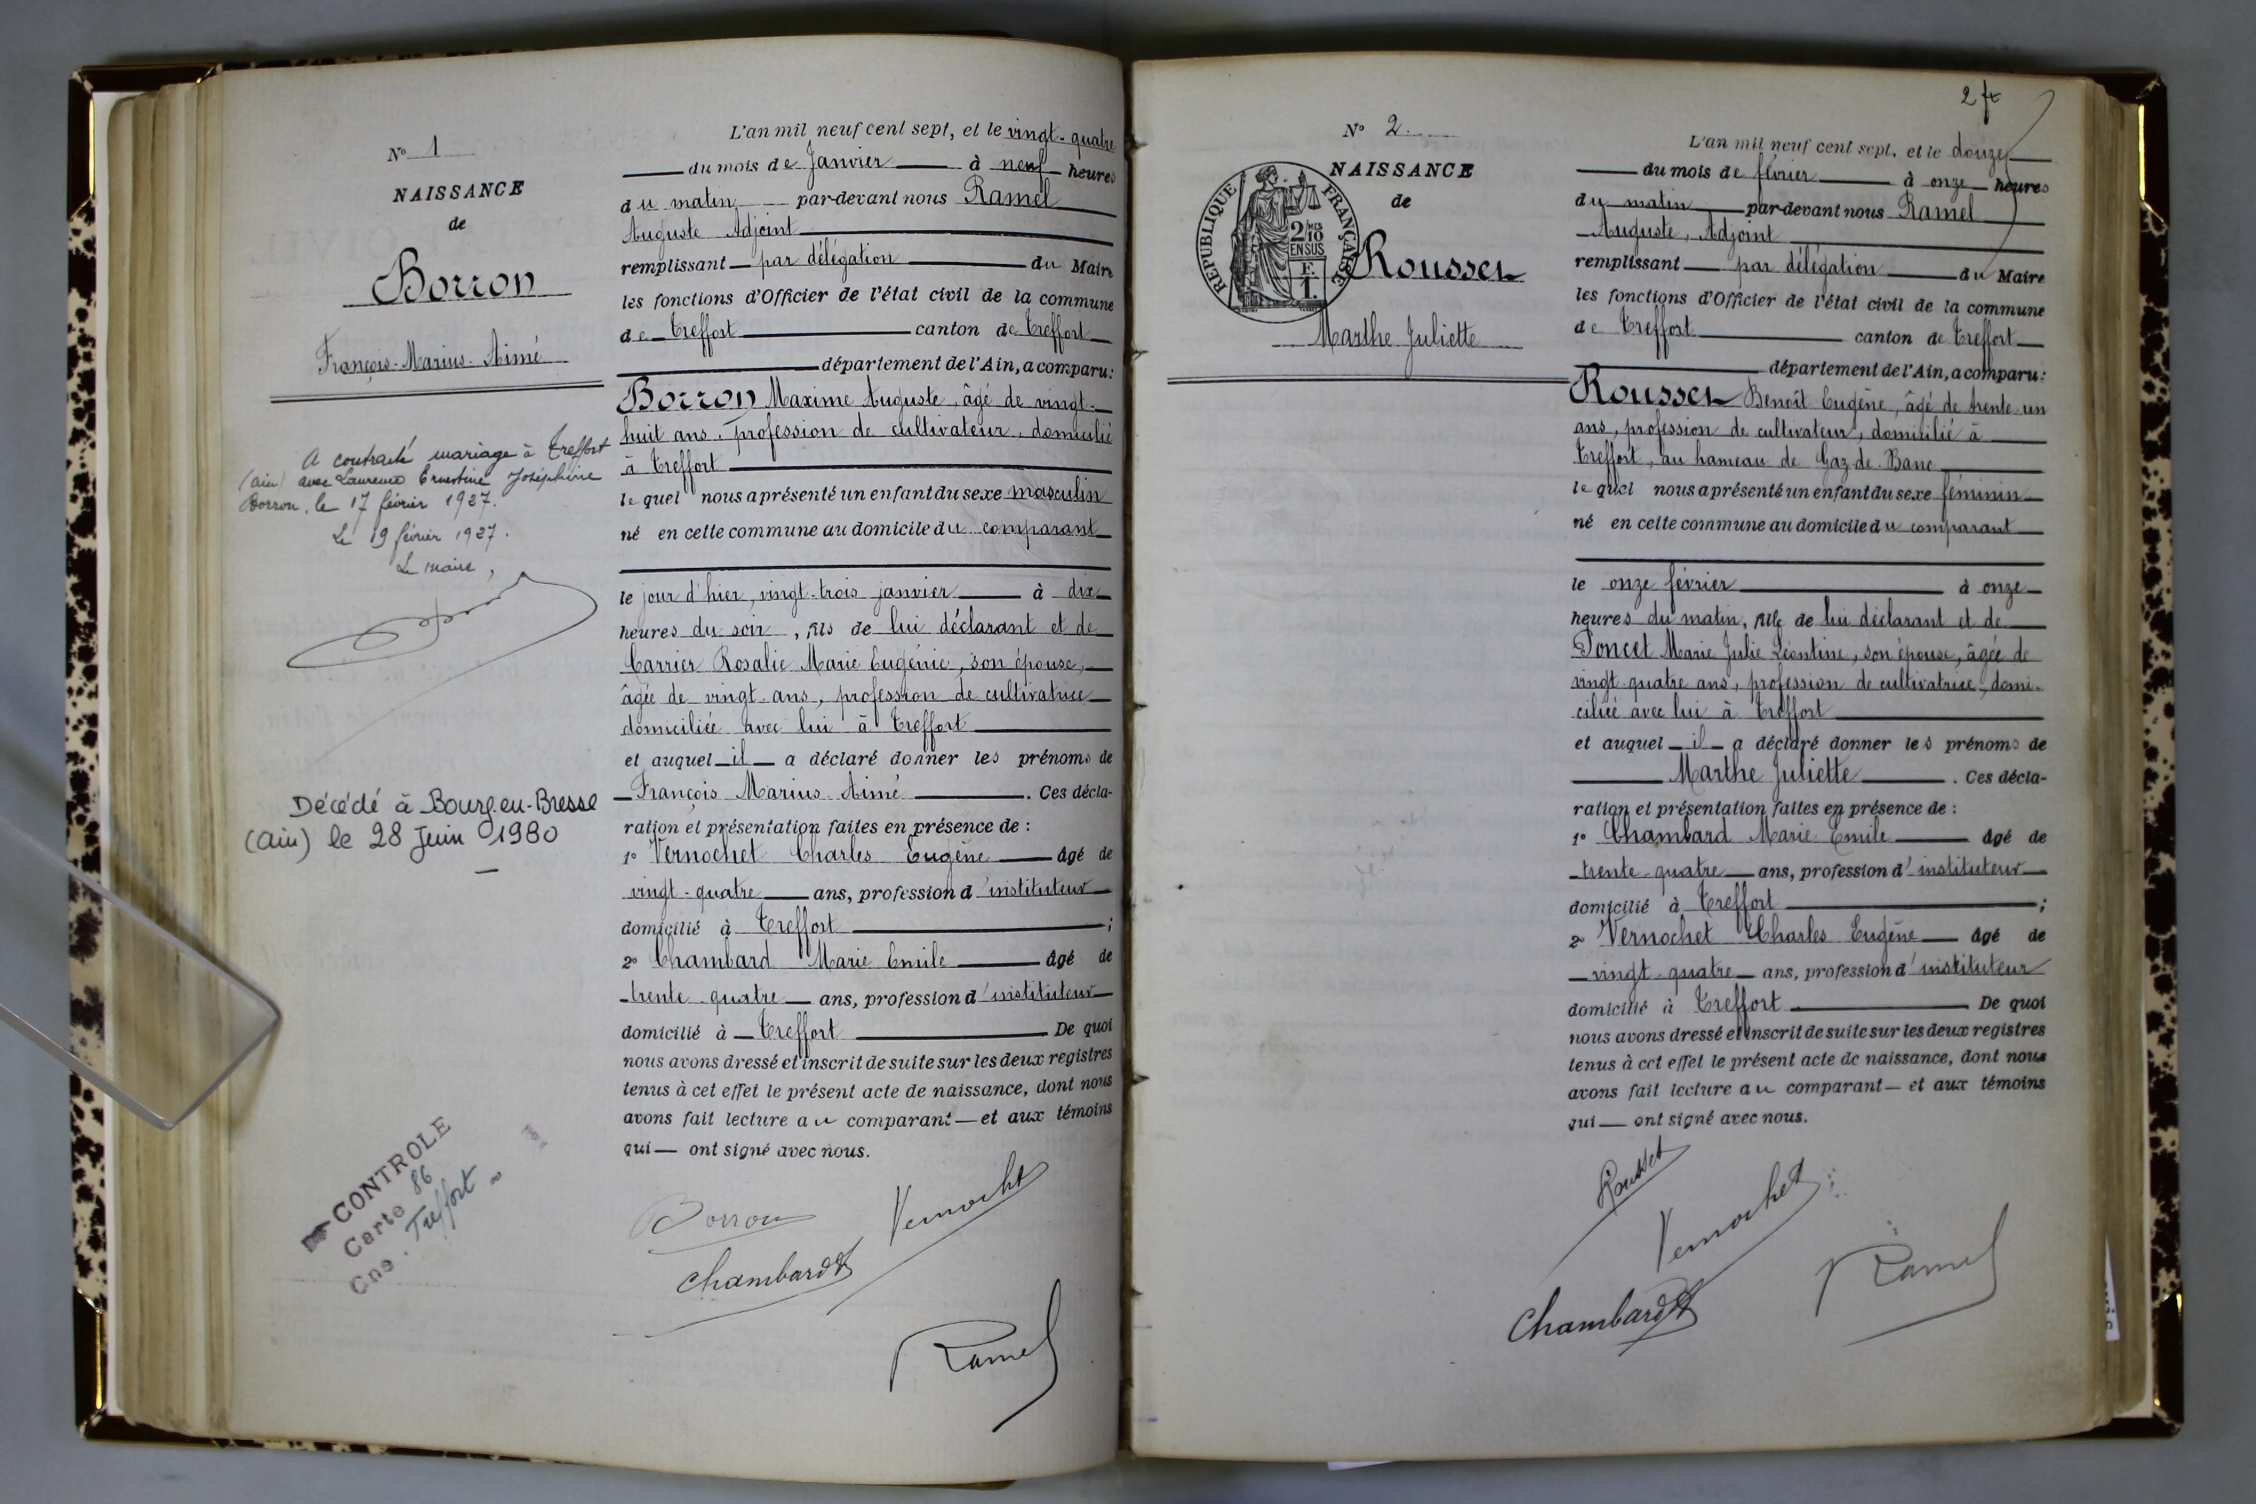 N° 1
NAISSANCE
de
Borron
François-Marius-Aimé
A contracté mariage à Treffort
(ain) avec Laurence Ernestine Joséphine
Borron, le 17 février 1937.
Le 19 février 1937.
Le maire,
Décédé à Bourg-en-Bresse
(Ain) le 28 Juin 1980
CONTROLE
Carte 86
Cne. Treffort
L'an mil neuf cent sept, et le vingt-quatre
du mois de Janvier à neuf heures
du matin par-devant nous Ramel
Auguste Adjoint
remplissant par délégation du Maire
les fonctions d'Officier de l'état civil de la commune
de Treffort canton de Treffort
département de l'Ain, a comparu:
Borron Maxime Auguste, âgé de vingt-
huit ans, profession de cultivateur, domicilié
à Treffort
lequel nous a présenté un enfant du sexe masculin
né en cette commune au domicile du comparant
le jour d'hier, vingt-trois janvier à dix
heures du soir, fils de lui déclarant et de
Carrier Rosalie Marie Eugénie, son épouse,
âgée de vingt ans, profession de cultivatrice
domiciliée avec lui à Treffort
et auquel il a déclaré donner les prénoms de
François Marius Aimé. Ces décla-
ration et présentation faites en présence de :
1° Vernochet Charles Eugène âgé de
vingt-quatre ans, profession d'instituteur
domicilié à Treffort ;
2° Chambard Marie Emile âgé de
trente-quatre ans, profession d'instituteur
domicilié à Treffort De quoi
nous avons dressé et inscrit de suite sur les deux registres
tenus à cet effet le présent acte de naissance, dont nous
avons fait lecture au comparant et aux témoins
qui ont signé avec nous.
Borron Vernochet
Chambard
Ramel
2
N° 2
NAISSANCE
de
REPUBLIQUE FRANÇAISE
2/10 MES
EN SUS
F.
1.
Rousset
Marthe Juliette
L'an mil neuf cent sept, et le douze
du mois de février à onze heures
du matin par-devant nous Ramel
Auguste, Adjoint
remplissant par délégation du Maire
les fonctions d'Officier de l'état civil de la commune
de Treffort canton de Treffort
département de l'Ain, a comparu:
Rousset Benoît Eugène, âgé de trente-un
ans, profession de cultivateur, domicilié à
Treffort, au hameau de
lequel nous a présenté un enfant du sexe féminin
né en cette commune au domicile du comparant
le onze février à onze
heures du matin, fille de lui déclarant et de
Poncet Marie Julie Léontine, son épouse, âgée de
vingt-quatre ans, profession de cultivatrice, domi-
ciliée avec lui à Treffort
et auquel il a déclaré donner les prénoms de
Marthe Juliette. Ces décla-
ration et présentation faites en présence de :
1° Chambard Marie Emile âgé de
trente-quatre ans, profession d'instituteur
domicilié à Treffort ;
2° Vernochet Charles Eugène âgé de
vingt-quatre ans, profession d'instituteur
domicilié à Treffort De quoi
nous avons dressé et inscrit de suite sur les deux registres
tenus à cet effet le présent acte de naissance, dont nous
avons fait lecture au comparant et aux témoins
qui ont signé avec nous.
Rousset
Vernochet
Chambard Ramel